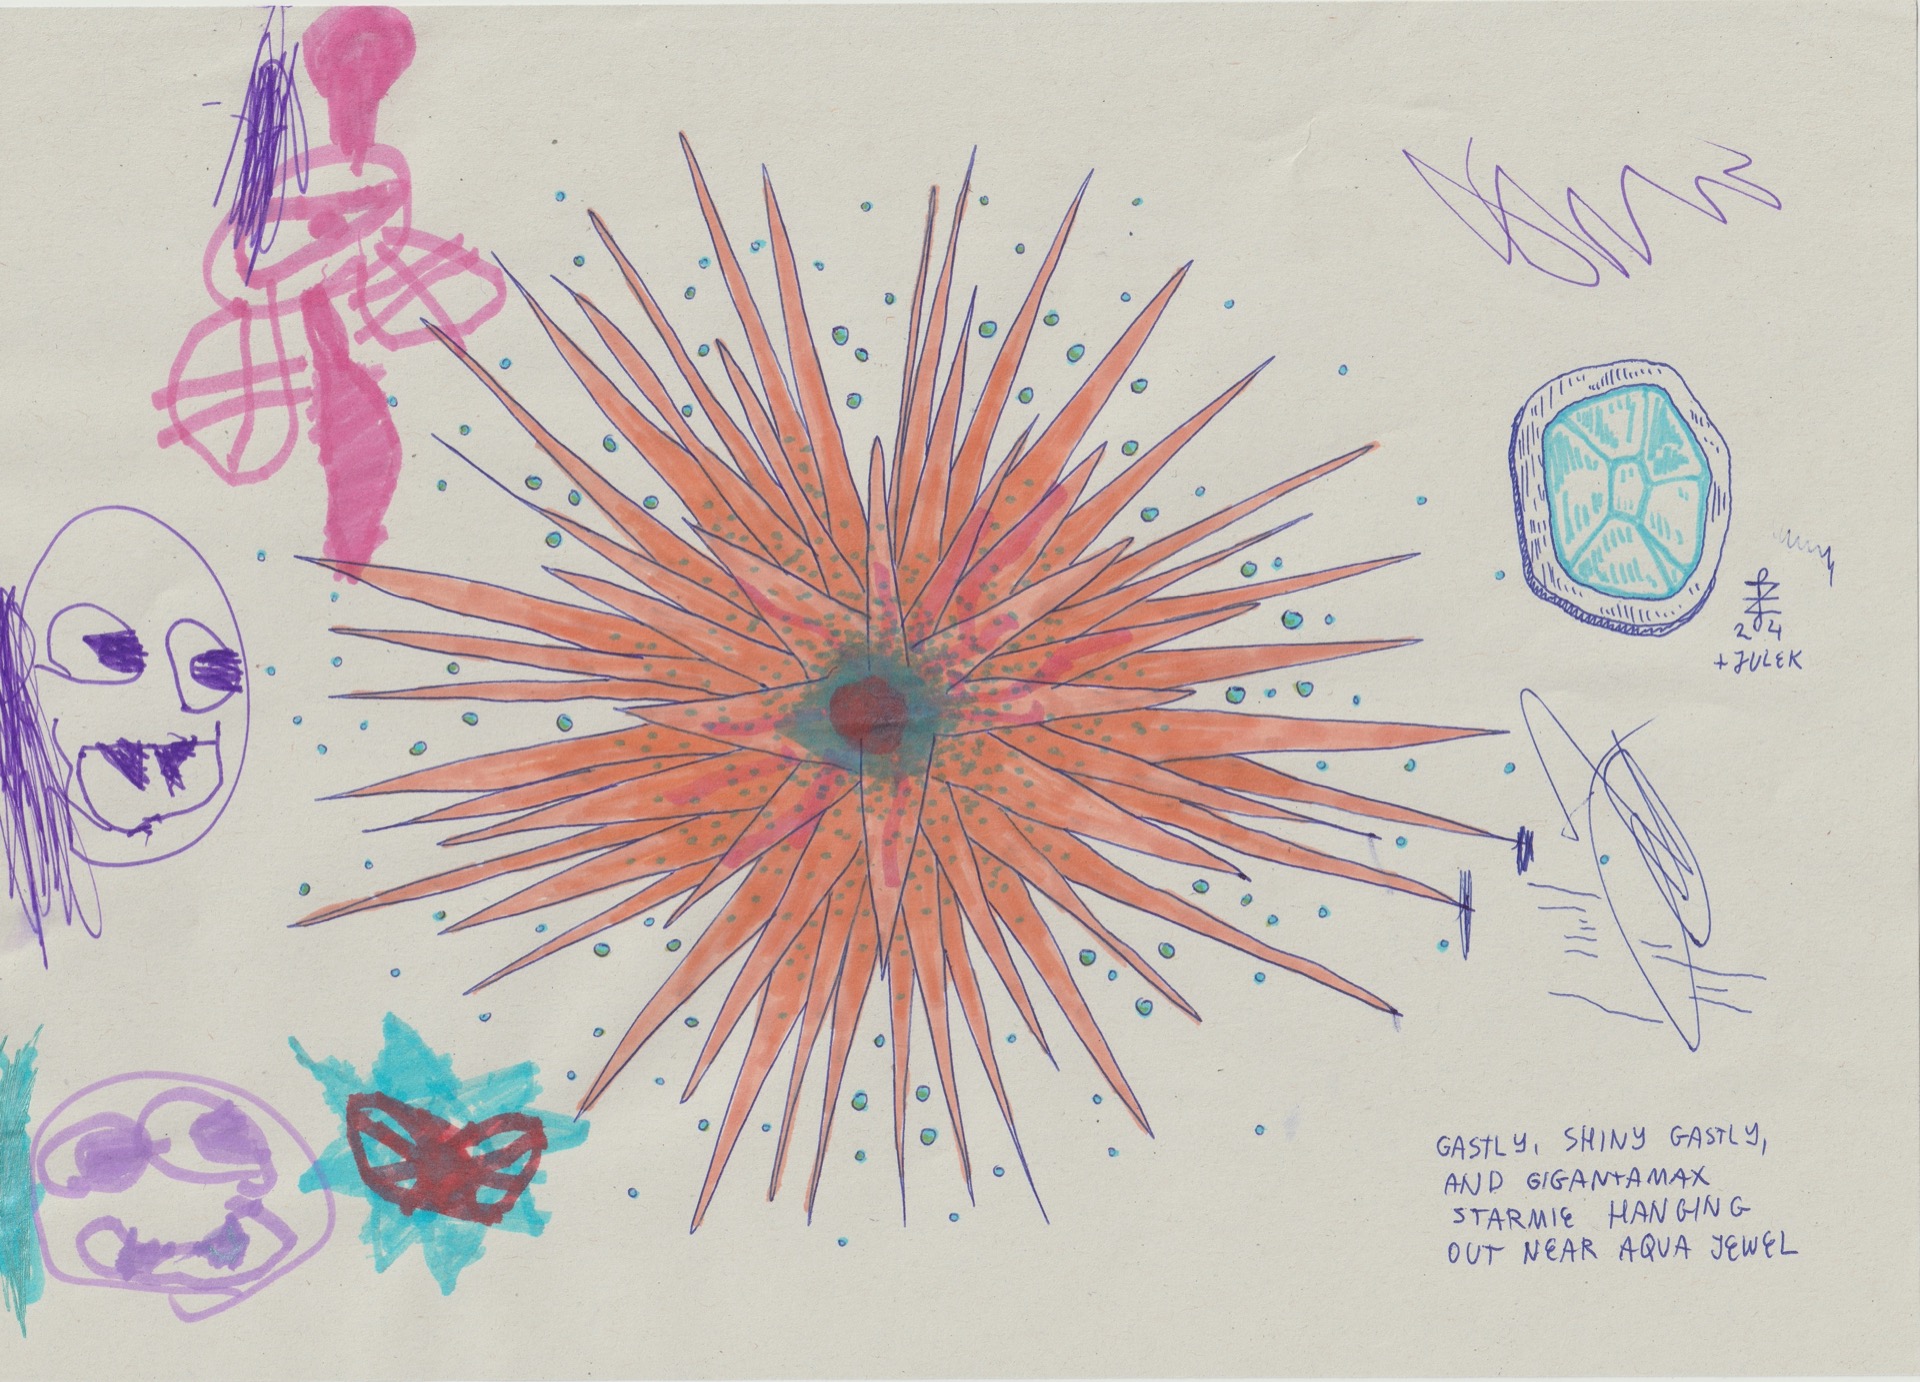 24
+ JULEK
GASTLY, SHINY GASTLY,
AND GIGANTAMAX
STARMIE HANGING
OUT NEAR AQUA JEWEL